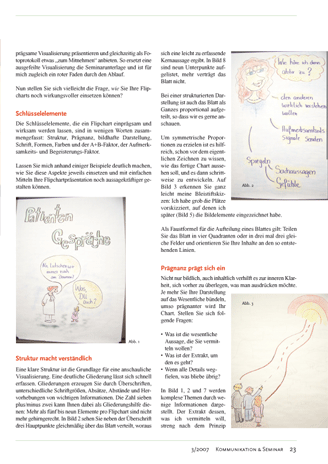 prägnante Visualisierung präsentieren und gleichzeitig als Fo-
toprotokoll etwas „zum Mitnehmen“ anbieten. So ersetzt eine
ausgefeilte Visualisierung die Seminarunterlage und ist für
mich zugleich ein roter Faden durch den Ablauf.
Nun stellen Sie sich vielleicht die Frage, wie Sie Ihre Flip-
charts noch wirkungsvoller einsetzen können?
Schlüsselelemente
Die Schlüsselelemente, die ein Flipchart einprägsam und
wirksam werden lassen, sind in wenigen Worten zusam-
mengefasst: Struktur, Prägnanz, bildhafte Darstellung,
Schrift, Formen, Farben und der A+B-Faktor, der Aufmerk-
samkeits- und Begeisterungs-Faktor.
Lassen Sie mich anhand einiger Beispiele deutlich machen,
wie Sie diese Aspekte jeweils einsetzen und mit einfachen
Mitteln Ihre Flipchartpräsentation noch aussagekräftiger ge-
stalten können.
Eltern
Gespräche
Abb. 1
Struktur macht verständlich
Eine klare Struktur ist die Grundlage für eine anschauliche
Visualisierung. Eine deutliche Gliederung lässt sich schnell
erfassen. Gliederungen erzeugen Sie durch Überschriften,
unterschiedliche Schriftgrößen, Absätze, Abstände und Her-
vorhebungen von wichtigen Informationen. Die Zahl sieben
plus/minus zwei kann Ihnen dabei als Gliederungshilfe die-
nen: Mehr als fünf bis neun Elemente pro Flipchart sind nicht
mehr gehirngerecht. In Bild 2 sehen Sie neben der Überschrift
drei Hauptpunkte gleichmäßig über das Blatt verteilt, woraus
sich eine leicht zu erfassende
Kernaussage ergibt. In Bild 8
sind neun Unterpunkte auf-
gelistet, mehr verträgt das
Blatt nicht.
Bei einer strukturierten Dar-
stellung ist auch das Blatt als
Ganzes proportional aufge-
teilt, so dass wir es gerne an-
schauen.
Um symmetrische Propor-
tionen zu erzielen ist es hilf-
reich, schon vor dem eigent-
lichen Zeichnen zu wissen,
wie das fertige Chart ausse-
hen soll, und es dann schritt-
weise zu entwickeln. Auf
Bild 3 erkennen Sie ganz
leicht meine Bleistiftskiz-
zen: Ich habe grob die Plätze
vorskizziert, auf denen ich
später (Bild 5) die Bildelemente eingezeichnet habe.
Als Faustformel für die Aufteilung eines Blattes gilt: Teilen
Sie das Blatt in vier Quadranten oder in drei mal drei glei-
che Felder und orientieren Sie Ihre Inhalte an den so entste-
henden Linien.
Prägnanz prägt sich ein
Nicht nur bildlich, auch inhaltlich verhilft es zur inneren Klar-
heit, sich vorher zu überlegen, was man ausdrücken möchte.
Je mehr Sie Ihre Darstellung
auf das Wesentliche bündeln,
umso prägnanter wird Ihr
Chart. Stellen Sie sich fol-
gende Fragen:
• Was ist die wesentliche
Aussage, die Sie vermit-
teln wollen?
• Was ist der Extrakt, um
den es geht?
• Wenn alle Details weg-
fielen, was bliebe übrig?
In Bild 1, 2 und 7 werden
komplexe Themen durch we-
nige Informationen darge-
stellt. Der Extrakt dessen,
was ich vermitteln will,
streng nach dem Prinzip
Abb. 2
Abb. 3
3/2007 Kommunikation & Seminar 23